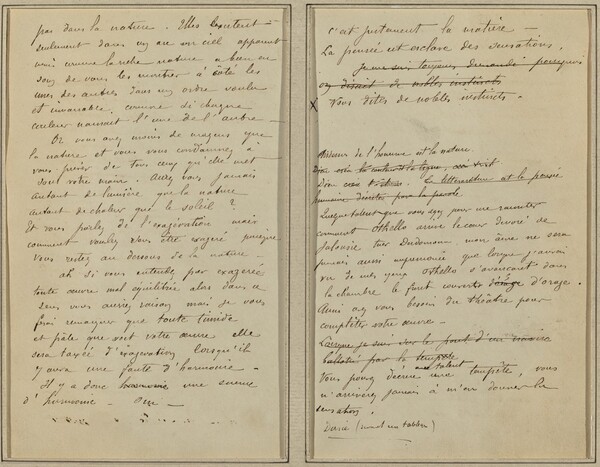 pas dans la nature. Elles existent
seulement dans un arc en ciel apparent
mais comme la riche nature a bien eu
soin de vous les montrer à côté les
unes des autres dans un ordre voulu
et immuable, comme si chaque
couleur naissait l'une de l'autre —
Or vous avez moins de moyens que
la nature et vous vous condamnez à
vous priver de tous ceux qu'elle met
sous votre main. Aurez vous jamais
autant de lumière que la nature
autant de chaleur que le soleil ?
Et vous parlez de l'exagération mais
comment voulez vous être exagéré puisque
vous restez au dessous de la nature —
ah si vous entendez par exagérée
toute œuvre mal équilibrée alors dans ce
sens vous auriez raison mais je vous
ferai remarquer que toute timide
et pâle que soit votre œuvre elle
sera taxée d'exagération lorsqu'il
y aura une faute d'harmonie —
Il y a donc harmonie une science
d'harmonie — Oui —
c'est justement la matière —
La pensée est esclave des sensations.
Je me suis toujours demandé pourquoi
on disait de nobles instincts
x Vous dites de nobles instincts.
Dessus de l'homme est la nature.
La littérature est la pensée
humaine décrite par la parole
Quelque talent que vous ayez pour me raconter
comment Othello arrive le cœur dévoré de
jalousie tuer Desdemona, mon âme ne sera
jamais aussi impressionnée que lorsque j'aurai
vu de mes yeux Othello s'avançant dans
la chambre le front couvert d'orage.
Aussi avez vous besoin du théâtre pour
compléter votre œuvre —
Lorsque je suis sur le pont d'un navire
ballotté par la tempête
avec talent
Vous pouvez décrire une tempête, vous
n'arriverez jamais à m'en donner la
sensation.